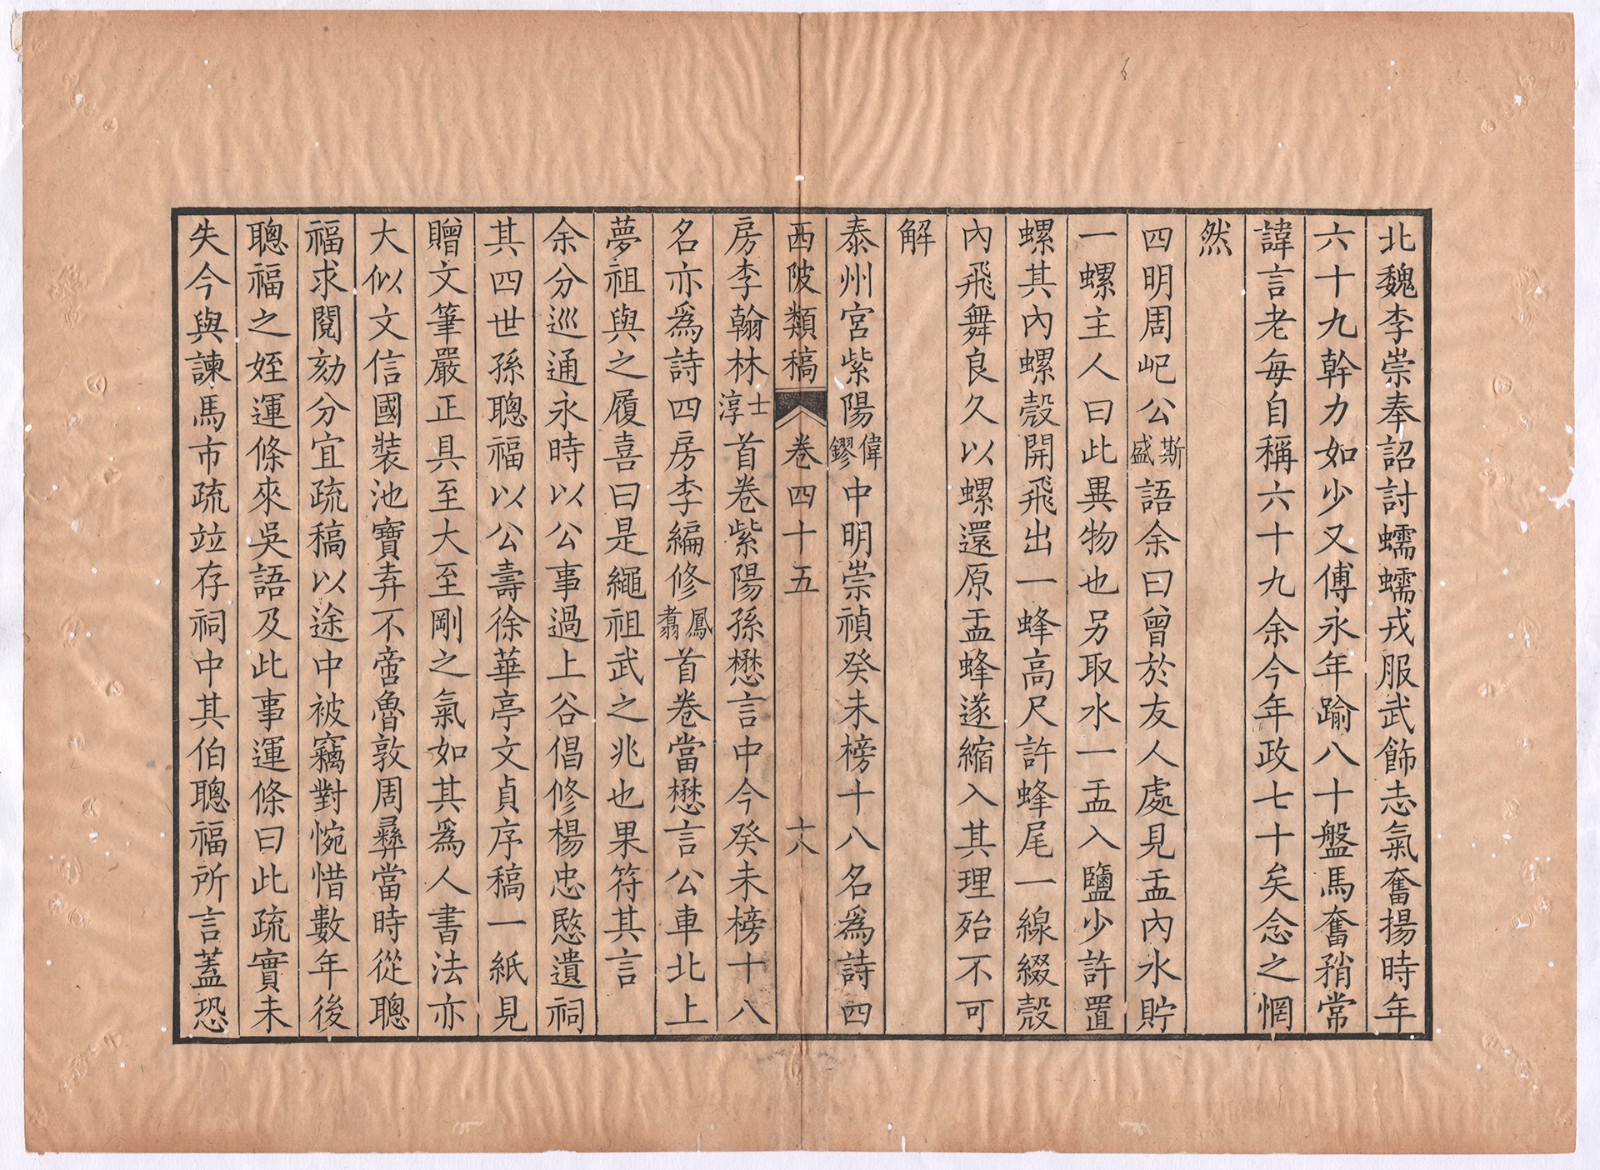 北魏李崇奉詔討蠕蠕戎服武飾志氣奮揚時年
六十九幹力如少又傅永年踰八十盤馬奮矟常
諱言老每自稱六十九余今年政七十矣念之惘
然
四明周屺公斯盛語余曰曾於友人處見盂內水貯
一螺主人曰此異物也另取水一盂入鹽少許置
螺其內螺殼開飛出一蜂高尺許蜂尾一線綴殼
內飛舞良久以螺還原盂蜂遂縮入其理殆不可
解
泰州宮紫陽偉鏐中明崇禎癸未榜十八名爲詩四
西陂類稿 卷四十五 十八
房李翰林士淳首卷紫陽孫懋言中今癸未榜十八
名亦爲詩四房李編修鳳翥首卷當懋言公車北上
夢祖與之履喜曰是繩祖武之兆也果符其言
余分巡通永時以公事過上谷倡修楊忠愍遺祠
其四世孫聰福以公壽徐華亭文貞序稿一紙見
贈文筆嚴正具至大至剛之氣如其爲人書法亦
大似文信國裝池寶弆不啻魯敦周彝當時從聰
福求閱劾分宜疏稿以途中被竊對惋惜數年後
聰福之姪運條來吳語及此事運條曰此疏實未
失今與諫馬市疏竝存祠中其伯聰福所言蓋恐